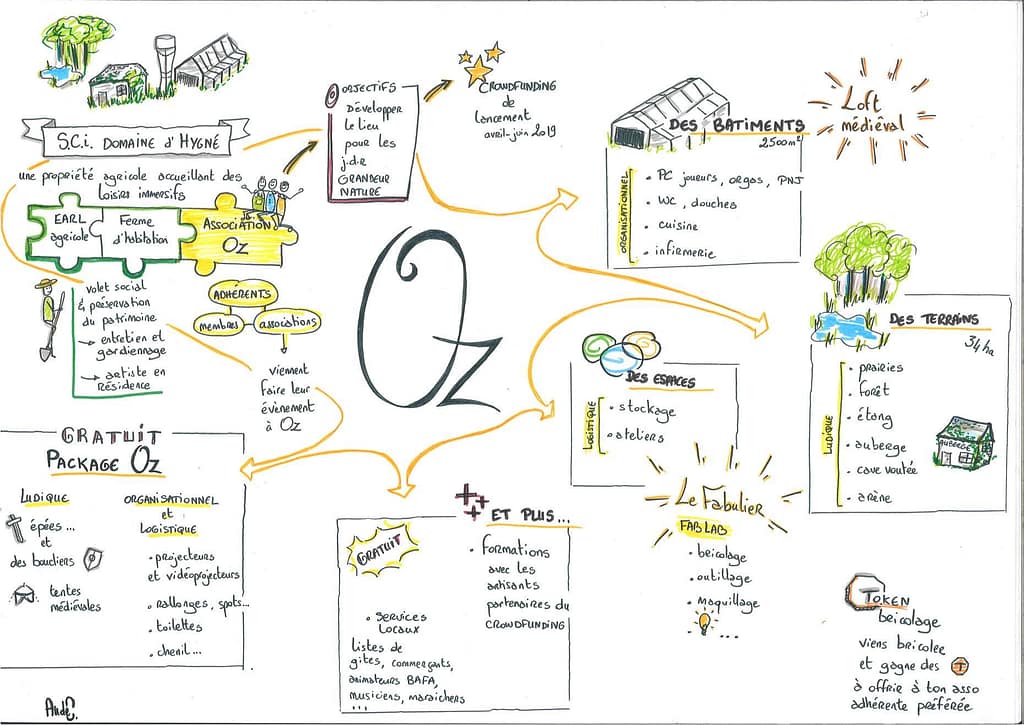 S.C.i. DOMAINE d'HYGNÉ
une propriété agricole accueillant des
loisirs immersifs
EARL
agricole
Ferme
d'habitation
ASSOCIATION
OZ
volet social
& préservation
du patrimoine
→ entretien et
gardiennage
→ artiste en
RÉSIDENCE
ADHÉRENTS
membres
associations
viennent
faire leur
évènement
à Oz
OBJECTIFS
Développer
le lieu
pour les
j.d.r
GRANDEUR
NATURE
CROWDFUNDING
de
lancement
avril-juin 2019
Oz
DES BATIMENTS
2500 m²
ORGANISATIONNEL
• PC joueurs, orgas, PNJ
• WC, douches
• cuisine
• infirmerie
Loft
médiéval
DES TERRAINS
34 ha
LUDIQUE
• prairies
• forêt
• étang
• auberge
• cave voutée
• arène
AUBERGE
DES ESPACES
LOGISTIQUE
• stockage
• ateliers
Le Fabulier
FABLAB
• bricolage
• outillage
• maquillage
...
GRATUIT
PACKAGE OZ
LUDIQUE
épées...
et
des boucliers
tentes
médiévales
ORGANISATIONNEL
et
LOGISTIQUE
• projecteurs
et vidéoprojecteurs
• rallonges, spots...
• toilettes
• chenil...
ET PLUS...
GRATUIT
• SERVICES
LOCAUX
listes de
gîtes, commerçants,
animateurs BAFA,
musiciens, maraichers
...
• Formations
avec les
artisants
partenaires du
CROWDFUNDING
TOKEN
bricolage
viens bricoler
et gagne des T
à offrir à ton asso
adhérente préférée